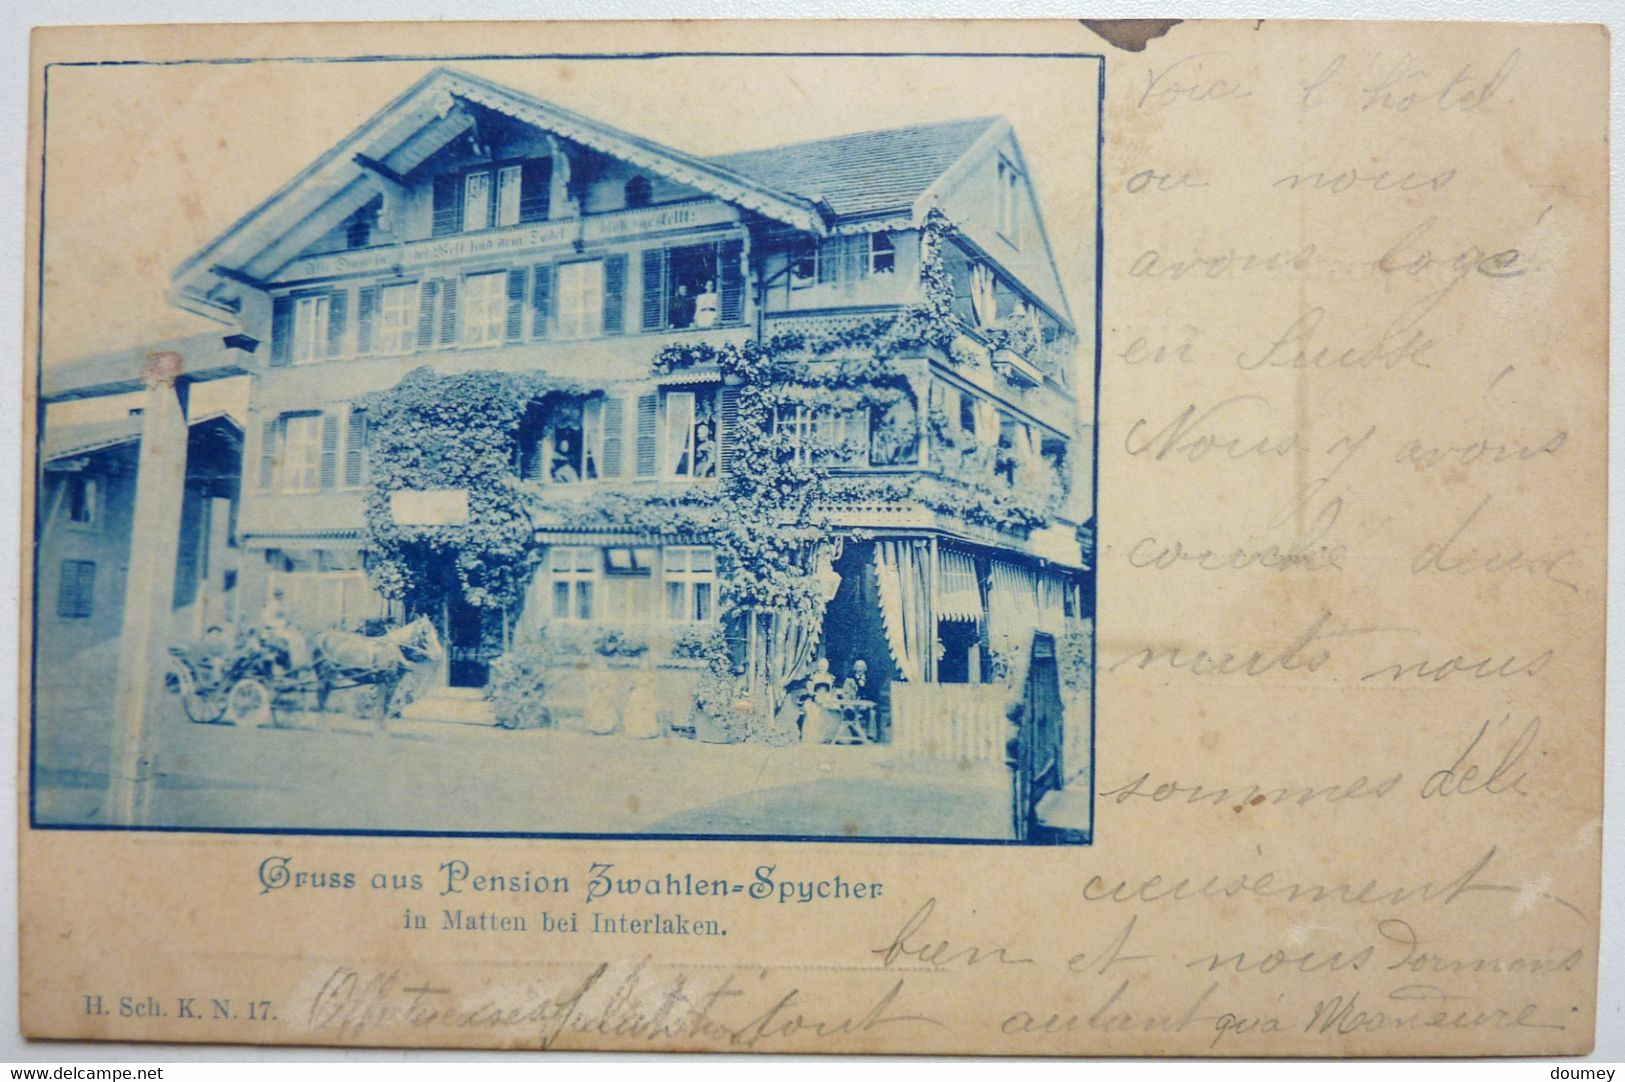 der Welt sind dem Tadel
Gruss aus Pension Zwahlen-Spycher
in Matten bei Interlaken.
H. Sch. K. N. 17.
Voici l'hôtel
ou nous
avons logé
en Suisse
Nous y avons
couché deux
nuits nous
sommes déli
cieusement
bien et nous Dormons
tout autant qu'à
delcampe.net
doumey